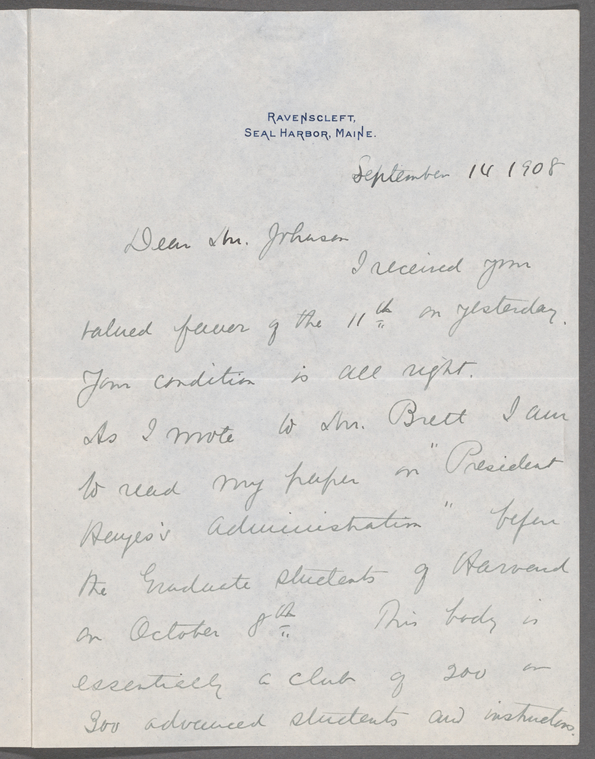 RAVENSCLEFT,
SEAL HARBOR, MAINE.
September 14 1908
Dear Mr. Johnson
I received your
valued favor of the 11th on yesterday.
Your condition is all right.
As I wrote to Mr. Brett I am
to read my paper on "President
Hayes's Administration" before
the Graduate Students of Harvard
on October 8th This body is
essentially a club of 200 or
300 advanced students and instructors.